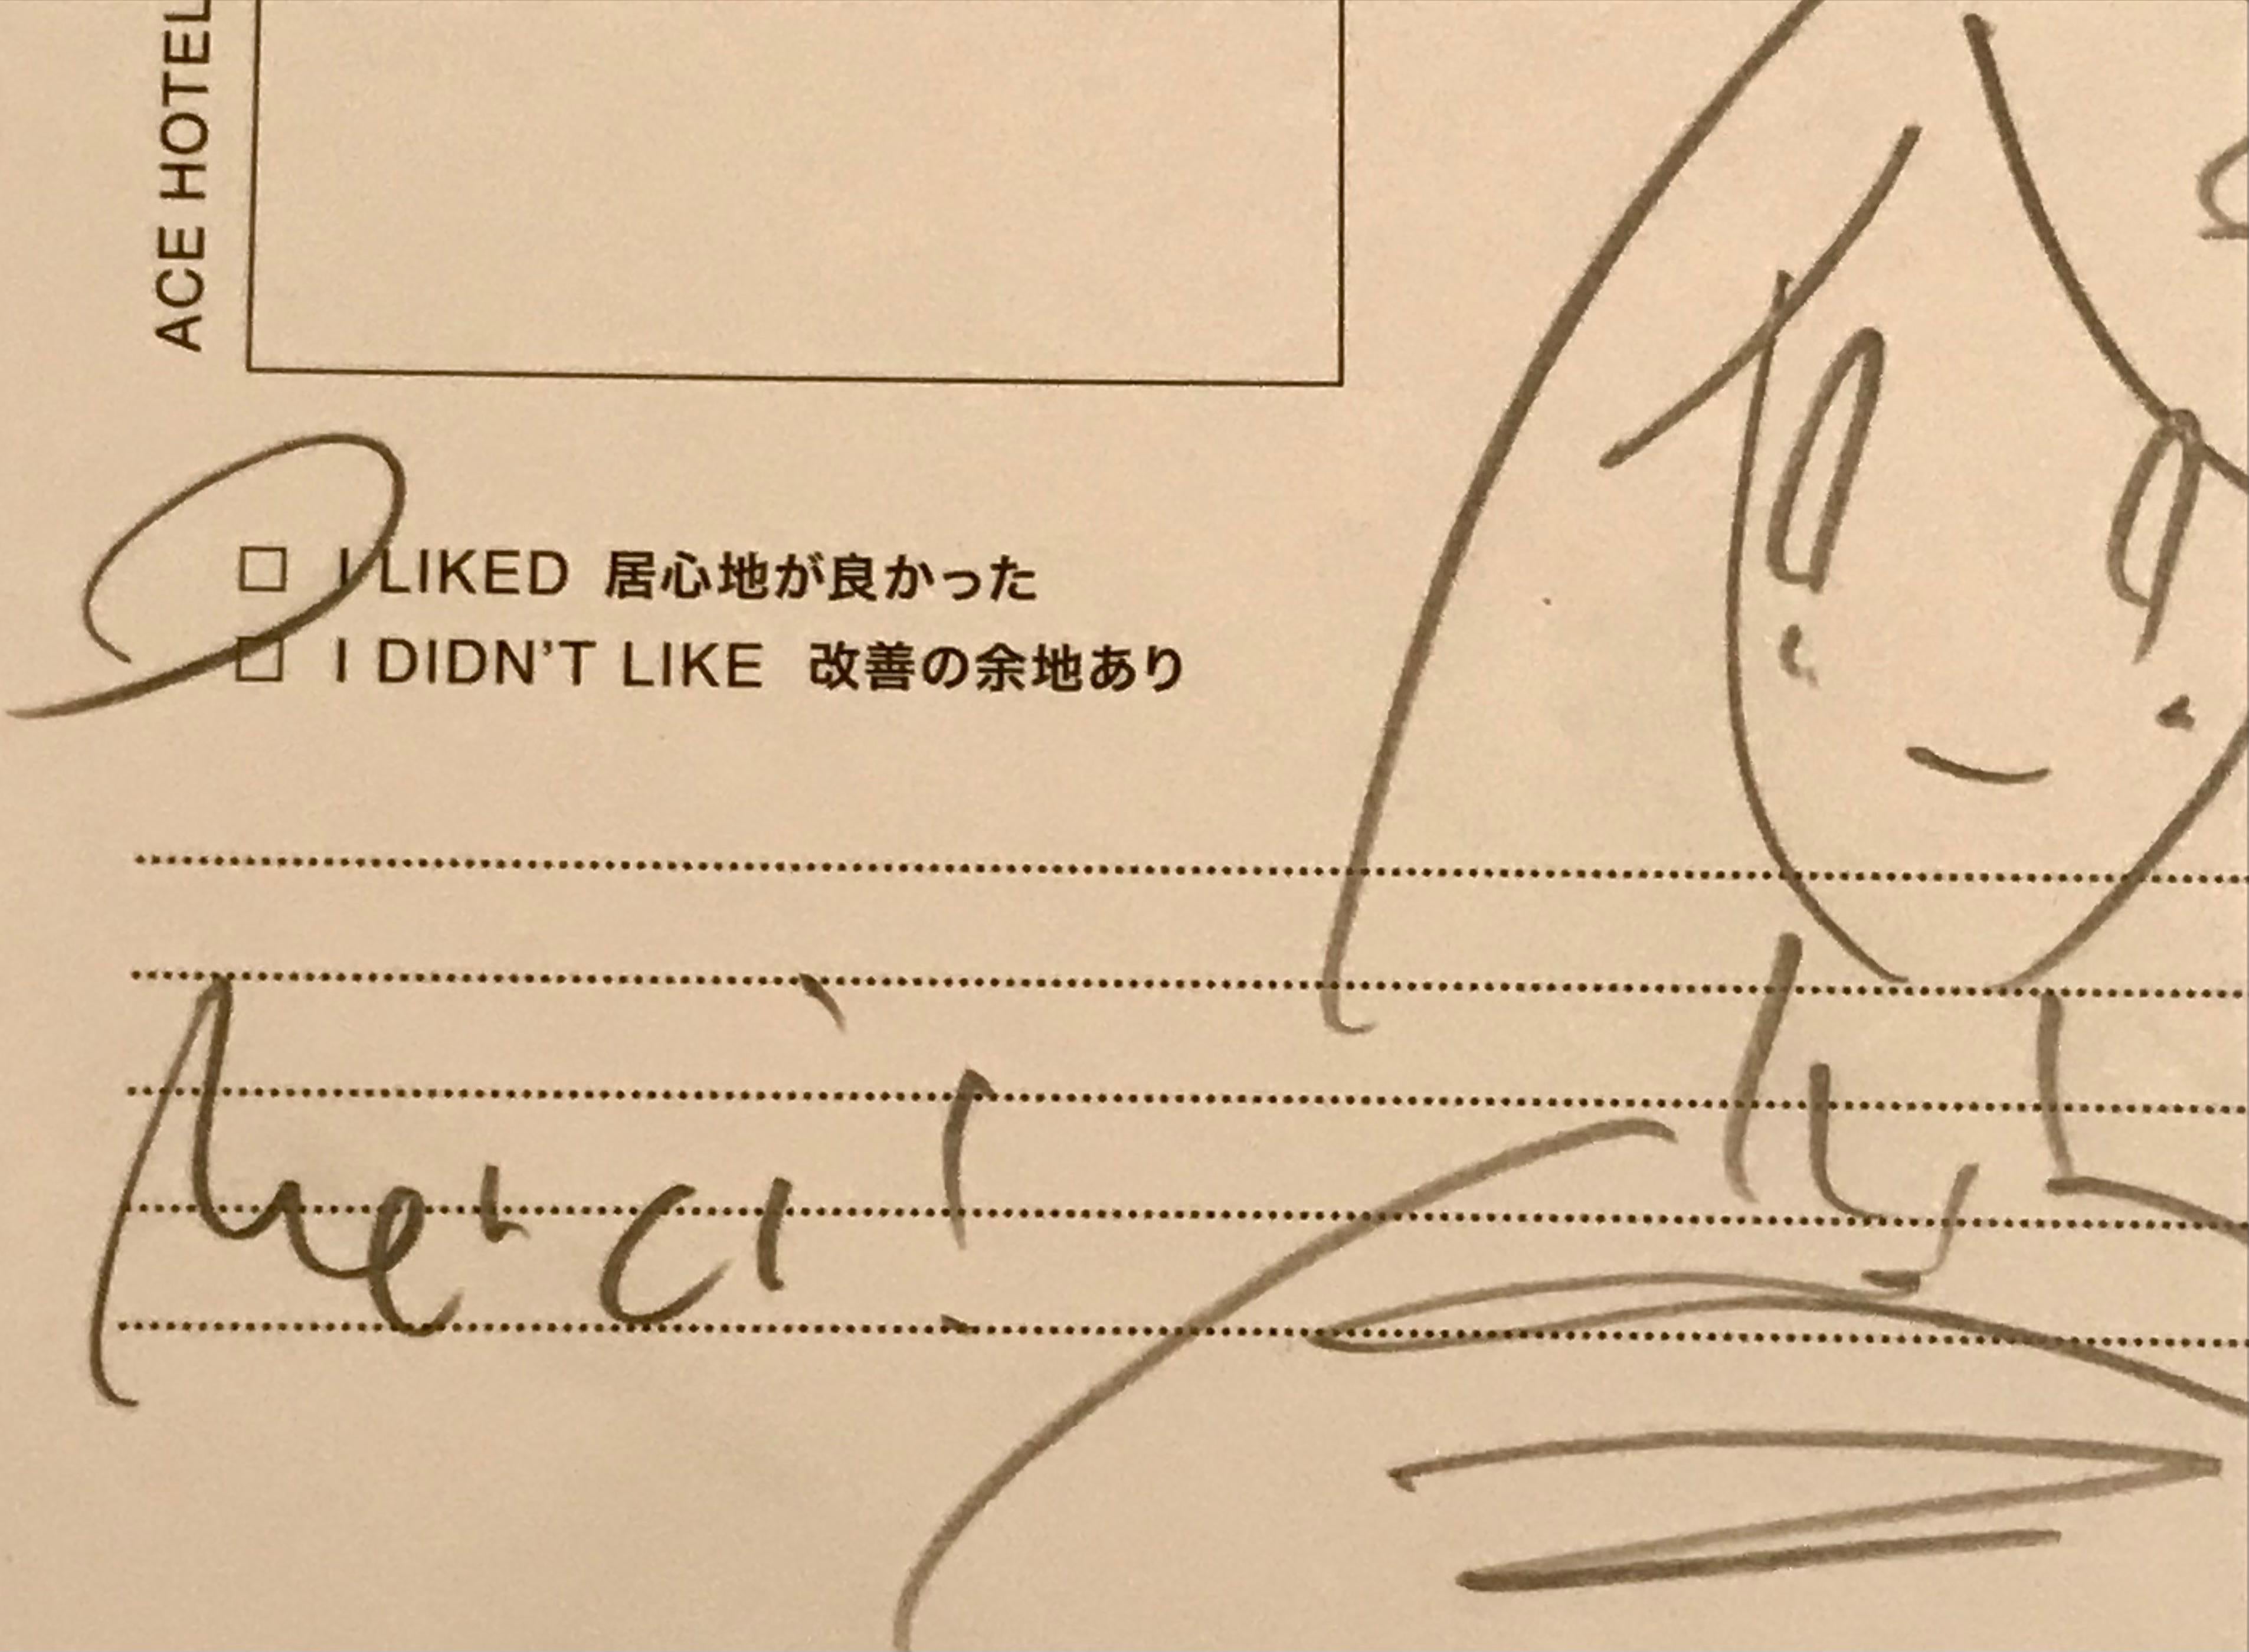 ACE HOTEL
I LIKED 居心地が良かった
I DIDN'T LIKE 改善の余地あり
Merci!